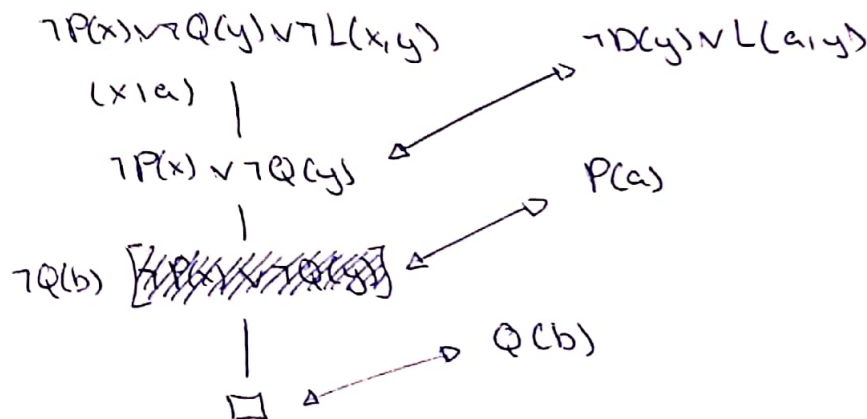 ¬P(x)∨¬Q(y)∨¬L(x,y)
¬D(y)∨L(a,y)
(x|a)
¬P(x)∨¬Q(y)
P(a)
¬Q(b)
Q(b)